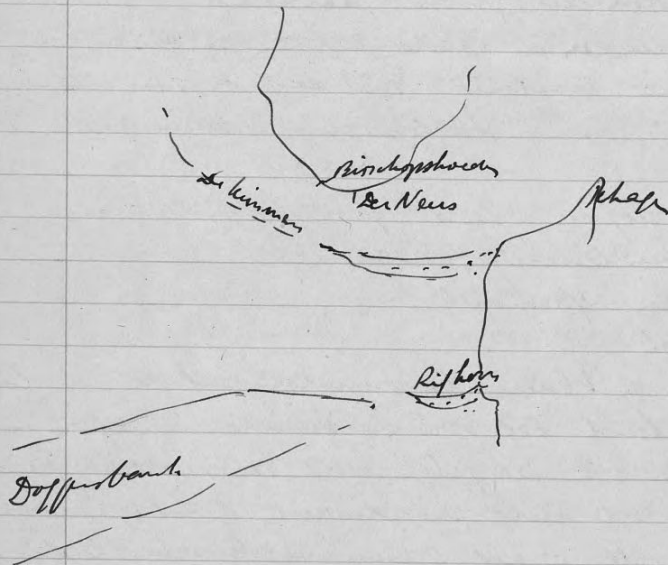 Bisschopshoeden
Der Neus
De Kimmen
Schagen
Rifhorn
Doggersbank